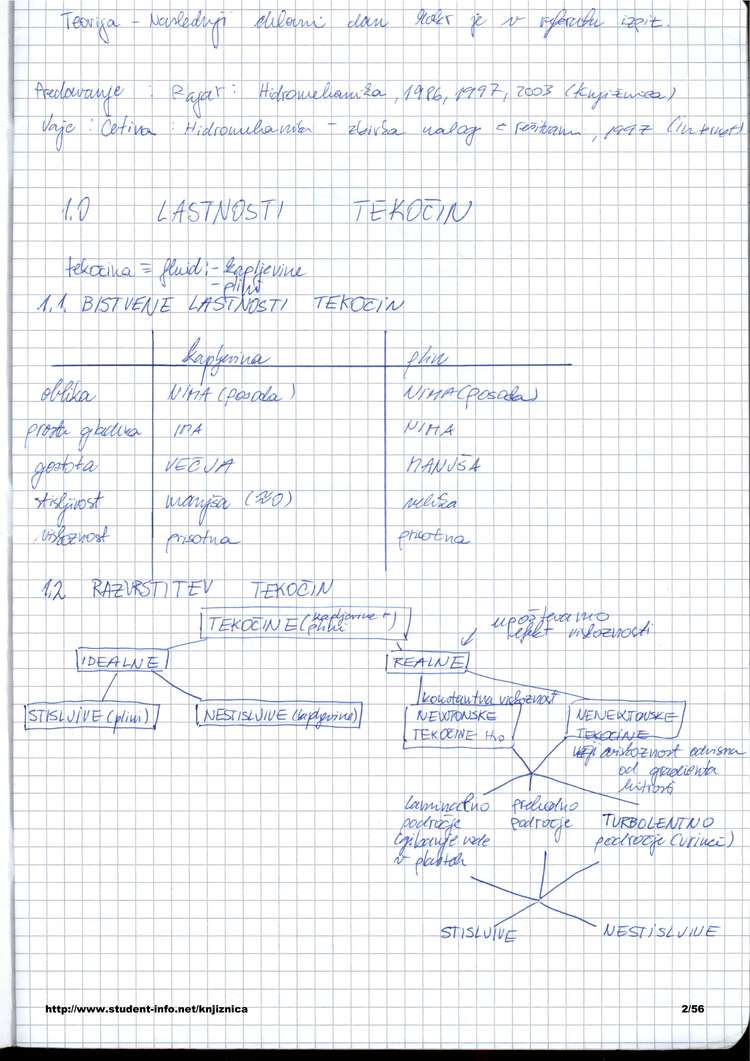 Teorija - Naslednji delovni dan kakr je v referatu izpit.
Predavanje : Rajar : Hidromehanika, 1986, 1997, 2003 (Knjižnica)
Vaje : Četina : Hidromehanika - zbirka nalog z rešitvami, 1997 (internet)
1.0 LASTNOSTI TEKOČIN
tekočina = fluid: - kapljevine
- plini
1.1. BISTVENE LASTNOSTI TEKOČIN
kapljevina plin
oblika NIMA (posoda) NIMA (posoda)
prosta gladina IMA NIMA
gostota VEČJA MANJŠA
stisljivost manjša (≈0) velika
viskoznost prisotna prisotna
1.2 RAZVRSTITEV TEKOČIN
TEKOČINE (kapljevine + plini)
upoštevamo
efekt viskoznosti
IDEALNE REALNE
konstantna viskoznost
STISLJIVE (plini) NESTISLJIVE (kapljevine) NEWTONSKE NENEWTONSKE
TEKOČINE H2O TEKOČINE
viskoznost odvisna
od gradienta
hitrosti
laminarno prehodno
področje področje TURBOLENTNO
(gibanje vode področje (vrtinci)
v plasteh
STISLJIVE NESTISLJIVE
http://www.student-info.net/knjiznica 2/56